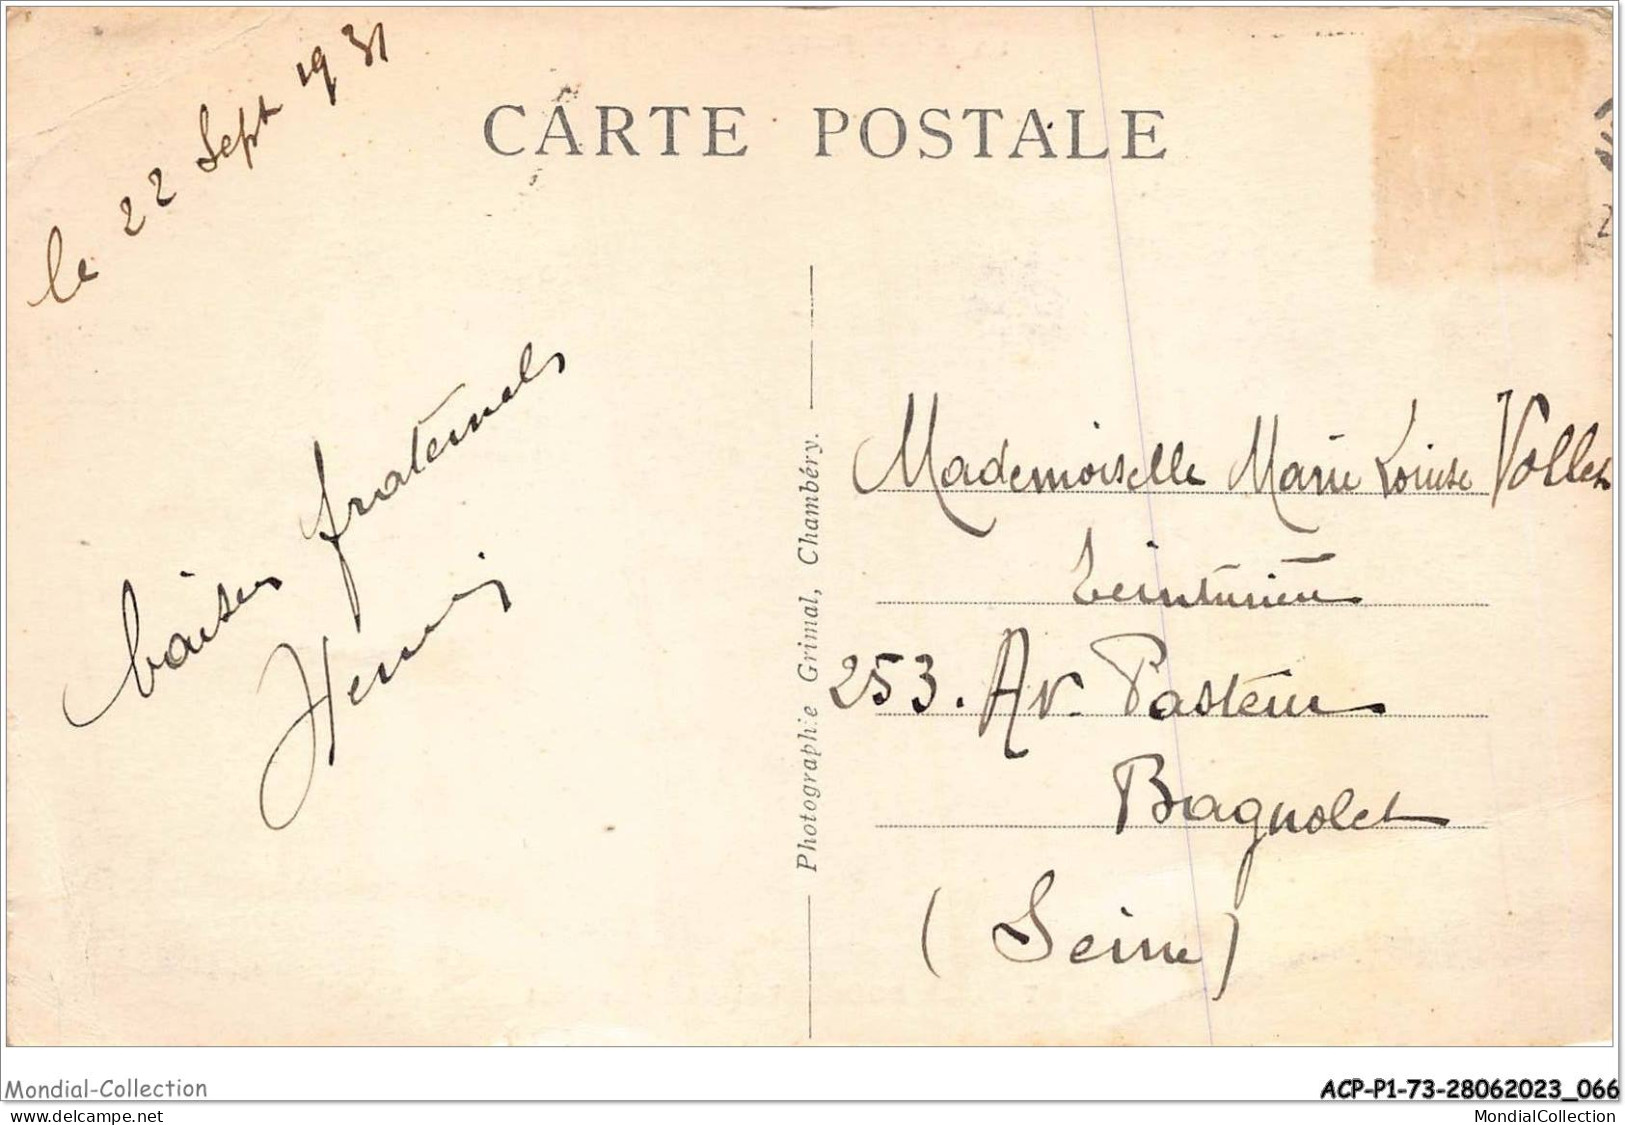 le 22 Sept 1931
CARTE POSTALE
baisers fraternels
Henri
Photographie Grimal, Chambéry.
Mademoiselle Marie Louise Vollet
Teinturière
253. Av. Pasteur
Bagnolet
(Seine)
Mondial-Collection
ACP-P1-73-28062023_066
www.delcampe.net
MondialCollection